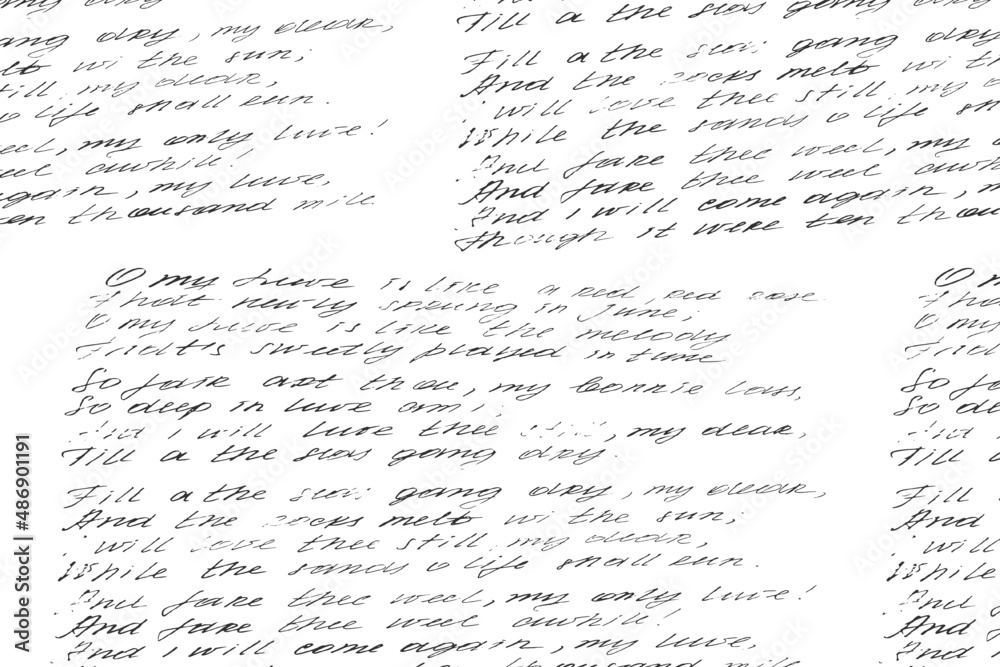 Till a the seas gang dry
ang dry, my dear,
melt wi the sun;
still, my dear,
o life shall run.
weel, my only luve!
weel awhile!
again, my luve,
ten thousand mile
Till a the seas gang dry
And the rocks melt wi th
i will love thee still, my d
While the sands o life sh
And fare thee weel, my o
And fare thee weel awh
And i will come again, m
though it were ten thou
O my Luve is like a red, red rose
That newly sprung in june;
O my Luve is like the melody
That's sweetly played in tune
So fair art thou, my bonnie lass,
So deep in luve am i;
And i will luve thee still, my dear,
Till a the seas gang dry.
Till a the seas gang dry, my dear,
And the rocks melt wi the sun;
i will love thee still, my dear,
While the sands o life shall run.
And fare thee weel, my only luve!
And fare thee weel awhile!
And i will come again, my luve,
thousand mile
O m
So fa
So de
And i
Till a
Till
And
i will
While
And
And fa
And i
Adobe Stock | #486901191
Adobe Stock